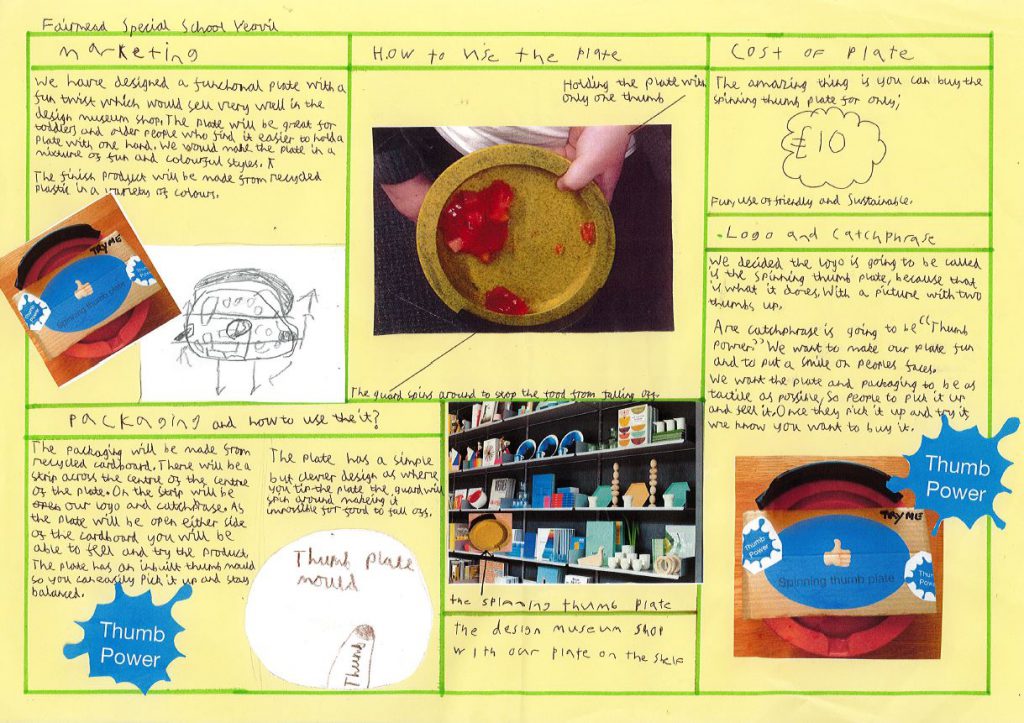 Fairmead Special School Yeovil
Marketing
We have designed a functional plate with a
fun twist which would sell very well in the
design museum shop. The plate will be great for
toddlers and older people who find it easier to hold a
plate with one hand. We would make the plate in a
mixture of fun and colourful styles.
The finish product will be made from recycled
plastic in a variety of colours.
TRY ME
Thumb
Power
Spinning thumb plate
Thumb
Power
How to use the plate
Holding the plate with
only one thumb
The guard spins around to stop the food from falling off.
Cost of plate
The amazing thing is you can buy the
spinning thumb plate for only;
£10
Fun, use of friendly and Sustainable.
Logo and Catchphrase
We decided the logo is going to be called
is the spinning thumb plate, because that
is what it does. With a picture with two
thumbs up.
Are catchphrase is going to be "Thumb
Power" We want to make our plate fun
and to put a smile on peoples faces.
We want the plate and packaging to be as
tactile as possible, so people to pick it up
and feel it. Once they pick it up and try it
we know you want to buy it.
Thumb
Power
TRY ME
Thumb
Power
Spinning thumb plate
Thumb
Power
Packaging and how to use the it?
The packaging will be made from
recycled cardboard. There will be a
strip across the centre of the centre
of the plate. On the strip will be
our logo and catchphrase. As
the plate will be open either side
of the cardboard you will be
able to feel and try the product.
The plate has an inbuilt thumb mould
so you can easily pick it up and stay
balanced.
Thumb
Power
The plate has a simple
but clever design as where
you tip the plate the guard will
spin around makeing it
impossible for food to fall off.
Thumb plate
mould
Thumb
the spinning thumb plate
the design museum shop
with our plate on the shelf